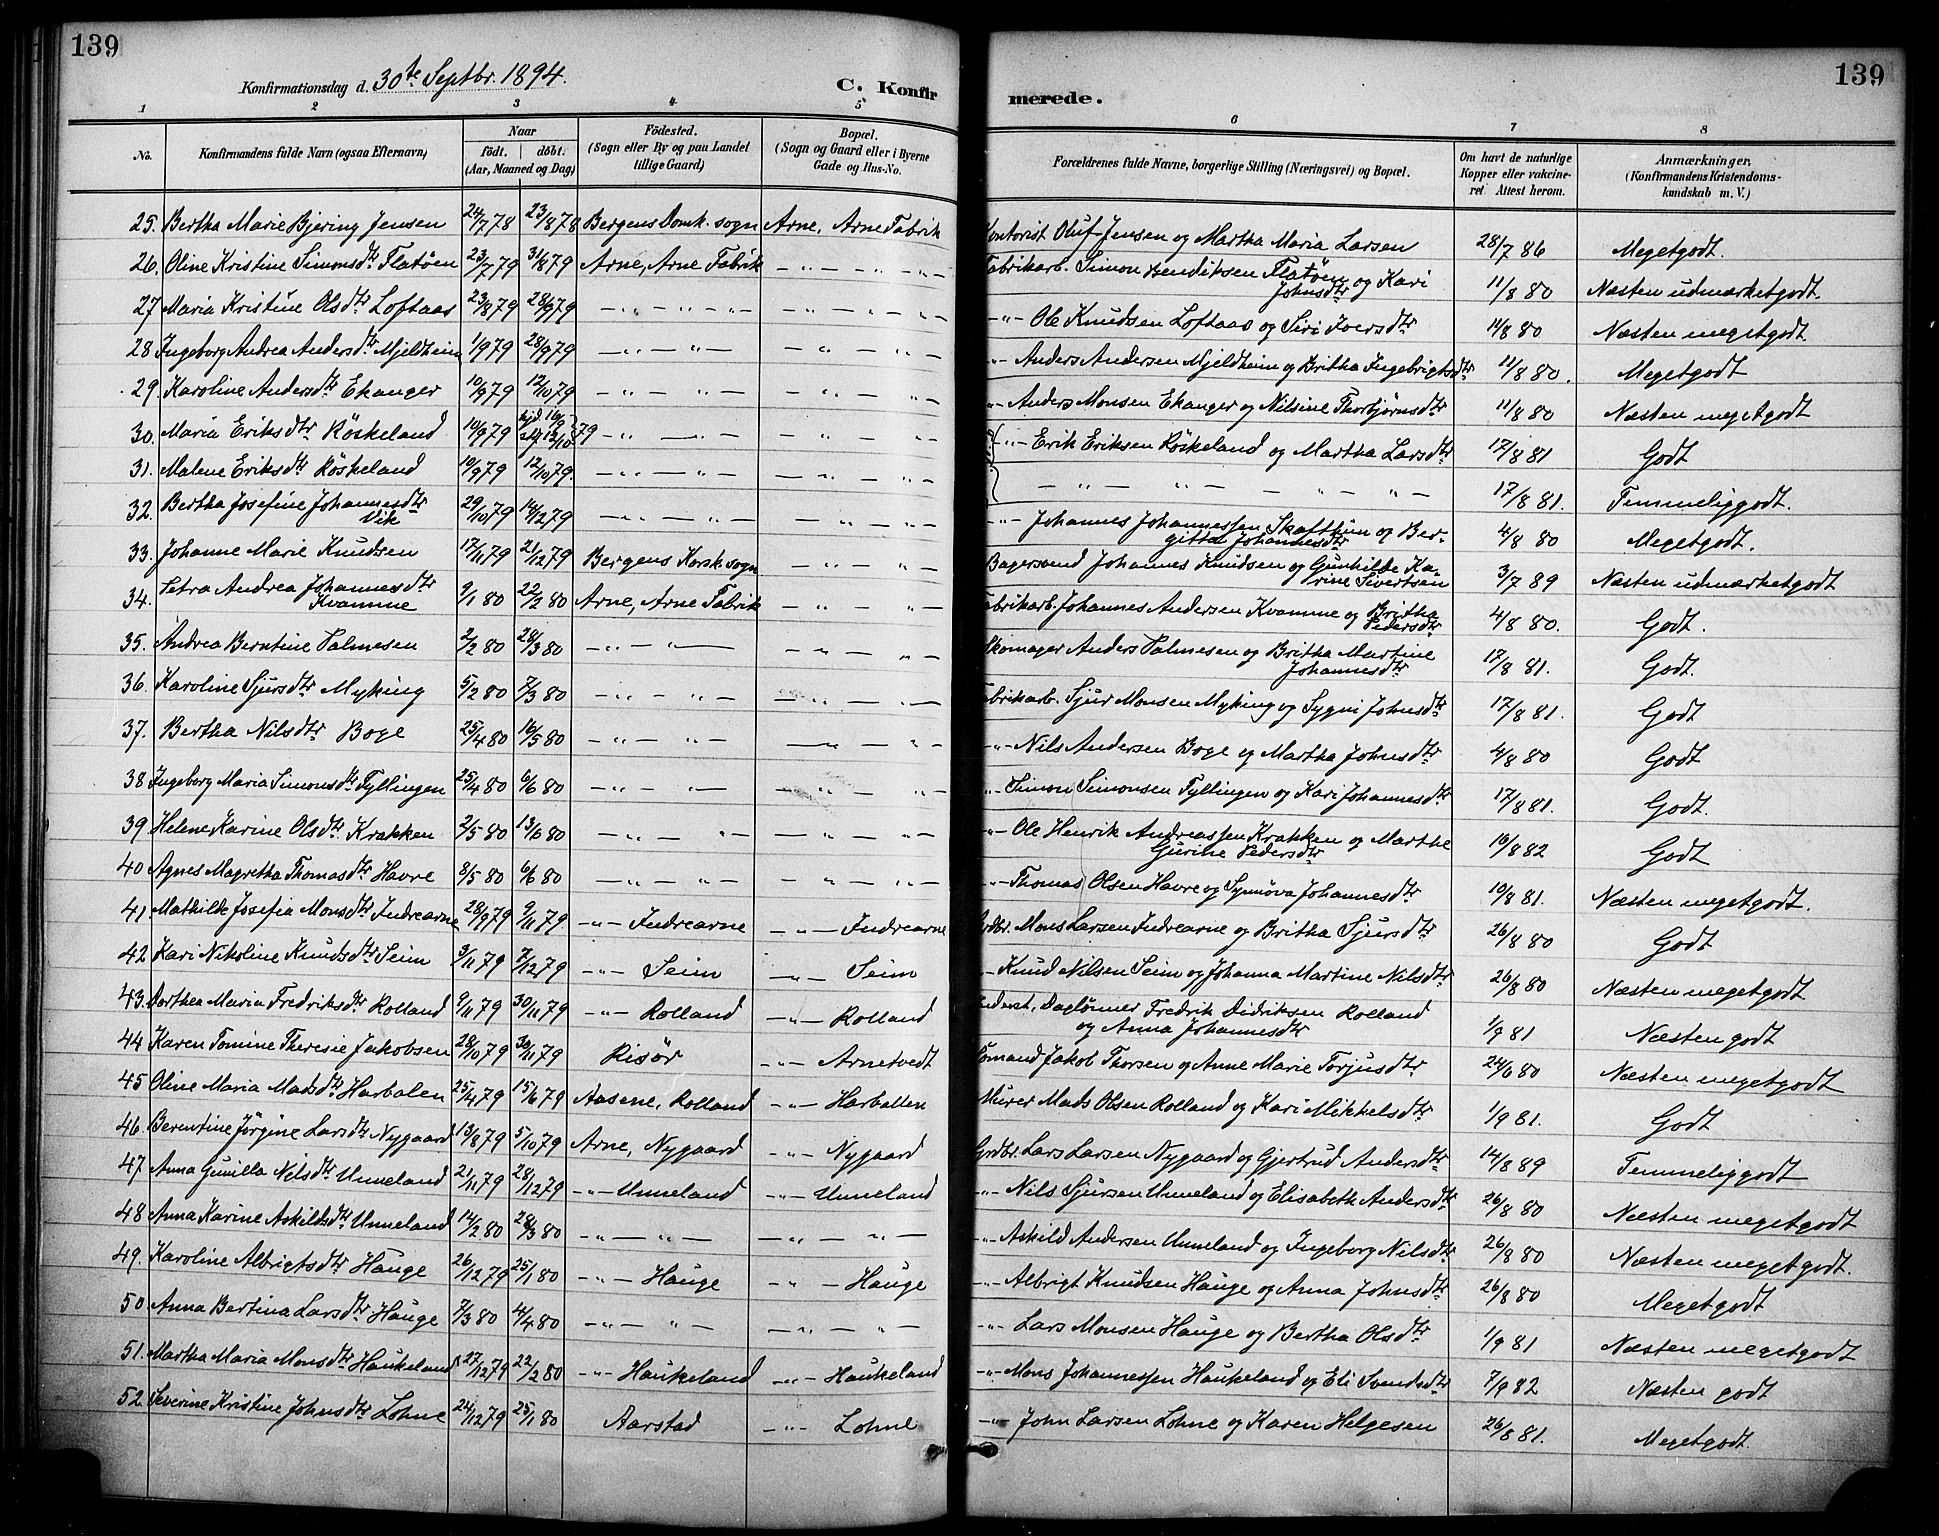 139
139
Konfirmationsdag d. 30te Septbr. 1894.
C. Konfirmerede.
1 2 3 4 5 6 7 8
No. Konfirmandens fulde Navn (ogsaa Efternavn) Naar födt. döbt. (Aar, Maaned og Dag) Födested. (Sogn eller By og paa Landet tillige Gaard) Bopæl. (Sogn og Gaard eller i Byerne Gade og Hus-No. Forældrenes fulde Navne, borgerlige Stilling (Næringsvei) og Bopæl. Om havt de naturlige Kopper eller vakcineret. Attest herom. Anmærkninger, (Konfirmandens Kristendomskundskab m. V.)
25. Bertha Marie Bjering Jensen 24/7 78 23/8 78 Bergens Domk. sogn Arne, Arne Fabrik Kontorist Oluf Jensen og Martha Maria Larsen 28/7 86 Megetgodt.
26. Oline Kristine Simonsdtr Flatöen 23/7 79 31/8 79 Arne, Arne Fabrik — " — " — Fabrikarb. Simon Bendiksen Flatöen og Kari Johnsdtr 11/8 80 Næsten udmærketgodt.
27 Maria Kristine Olsdtr Loftaas 23/8 79 28/9 79 — " — " — — " — " — — " — Ole Knudsen Loftaas og Siri Iversdtr 11/8 80 Næsten megetgodt.
28 Ingeborg Andrea Andersdtr Mjeldheim 1/9 79 28/9 79 — " — " — — " — " — " — Anders Andersen Mjeldheim og Britha Ingebrigtsdtr 11/8 80. Megetgodt
29. Karoline Andersdtr Ekanger 10/9 79 12/10 79 — " — " — — " — " — " — Anders Monsen Ekanger og Nilsine Thorbjørnsdtr 11/8 80 Næsten megetgodt
30. Maria Eriksdtr Röskeland 10/9 79 hjd. 10/9 stf 12/10 79 — " — " — — " — " — " — Erik Eriksen Röskeland og Martha Larsdtr 17/8 81 Godt
31. Malene Eriksdtr Röskeland 10/9 79 12/10 79. — " — " — — " — " — — " — " — " — " — 17/8 81. Temmeliggodt.
32. Bertha Josefine Johannesdtr Vik 29/10 79 14/12 79 — " — " — — " — " — — " — Johannes Johannessen Skafthun og Bergitta Johannesdtr 4/8 80 Megetgodt.
33. Johanne Marie Knudsen 17/11 79 21/12 79 Bergens Korsk. sogn — " — " — Bagersvend Johannes Knudsen og Gunhilde Karine Sivertsen 3/7 89 Næsten udmærketgodt
34. Petra Andrea Johannesdtr Kvamme 9/1 80 22/2 80 Arne, Arne Fabrik — " — " — Fabrikarb. Johannes Andersen Kvamme og Britha Pedersdtr 4/8 80. Godt.
35. Andrea Berntine Palmesen 2/2 80 28/3 80 — " — " — — " — " — Skomager Anders Palmesen og Britha Martine Johannesdtr 17/8 81. Godt.
36. Karoline Sjursdtr Myking 5/2 80 7/3 80 — " — " — — " — " — Fabrikarb. Sjur Monsen Myking og Sygni Johnsdtr 17/8 81. Godt
37. Bertha Nilsdtr Boge 25/4 80 16/5 80 — " — " — — " — " — " — Nils Andersen Boge og Martha Johnsdtr 4/8 80 Godt
38 Ingeborg Maria Simonsdtr Tyllingen 25/4 80 6/6 80 — " — " — — " — " — " — Simon Simonsen Tyllingen og Kari Johannesdtr 17/8 81. Godt.
39 Helene Karine Olsdtr Krakken 2/5 80 13/6 80 — " — " — — " — " — " — Ole Henrik Andreassen Krakken og Marthe Gurine Pedersdtr 16/8 82 Godt
40 Agnes Magretha Thomasdtr Havre 8/5 80 6/6 80 — " — " — — " — " — " — Thomas Olsen Havre og Synnöva Johannesdtr 10/8 81. Næsten megetgodt.
41. Mathilde Josefia Monsdtr Indrearne 28/9 79 9/11 79. — " — Indrearne — " — Indrearne Grdbr. Mons Larsen Indrearne og Britha Sjursdtr 26/8 80 Godt
42 Kari Nikoline Knudsdtr Seim 3/11 79 7/12 79 — " — Seim — " — Seim — Knud Nilsen Seim og Johanna Martine Nilsdtr 26/8 80 Næsten megetgodt
43. Dorthea Maria Fredriksdtr Rolland 9/11 79 30/11 79 — " — Rolland — " — Rolland Inderst, Daglönner Fredrik Didriksen Rolland og Anna Johannesdtr 1/9 81 Næsten godt
44 Karen Tomine Theresie Jakobsen 28/10 79 30/11 79 Risör — " — Arnetvedt Sömand Jakob Thorsen og Anne Marie Torjusdtr 24/6 80 Næsten megetgodt
45 Oline Maria Madsdtr Harbalen 25/4 79 15/6 79 Aasene, Rolland — " — Harballen Murer Mads Olsen Rolland og Kari Mikkelsdtr 1/9 81. Godt
46. Berentine Jörgine Larsdtr Nygaard 13/8 79 5/10 79 Arne, Nygaard — " — Nygaard Grdbr. Lars Larsen Nygaard og Gjertrud Andersdtr 14/8 89 Temmeliggodt
47. Anna Gunilla Nilsdtr Unneland 21/11 79 28/12 79 — " — Unneland — " — Unneland — " — Nils Sjursen Unneland og Elisabeth Andersdtr 26/8 80 Næsten megetgodt
48 Anna Karine Askildsdtr Unneland 14/2 80 28/3 80 — " — " — — " — " — — " — Askild Andersen Unneland og Ingeborg Nilsdtr 26/8 80 Næsten megetgodt.
49. Karoline Albrigtsdtr Hauge 26/12 79 25/1 80 — " — Hauge — " — Hauge — " — Albrigt Knudsen Hauge og Anna Johnsdtr 26/8 80 Megetgodt
50. Anna Bertina Larsdtr Hauge 7/3 80 4/4 80 — " — " — — " — " — — " — Lars Monsen Hauge og Bertha Olsdtr 1/9 81 Næsten megetgodt
51. Martha Maria Monsdtr Haukeland 27/12 79 22/2 80 — " — Haukeland — " — Haukeland — " — Mons Johannessen Haukeland og Eli Svendsdtr 7/9 82 Næsten godt
52. Severine Kristine Johnsdtr Lohne 24/12 79 25/1 80 Aarstad — " — Lohne — " — John Larsen Lohne og Karen Helgesen 26/8 81. Megetgodt.